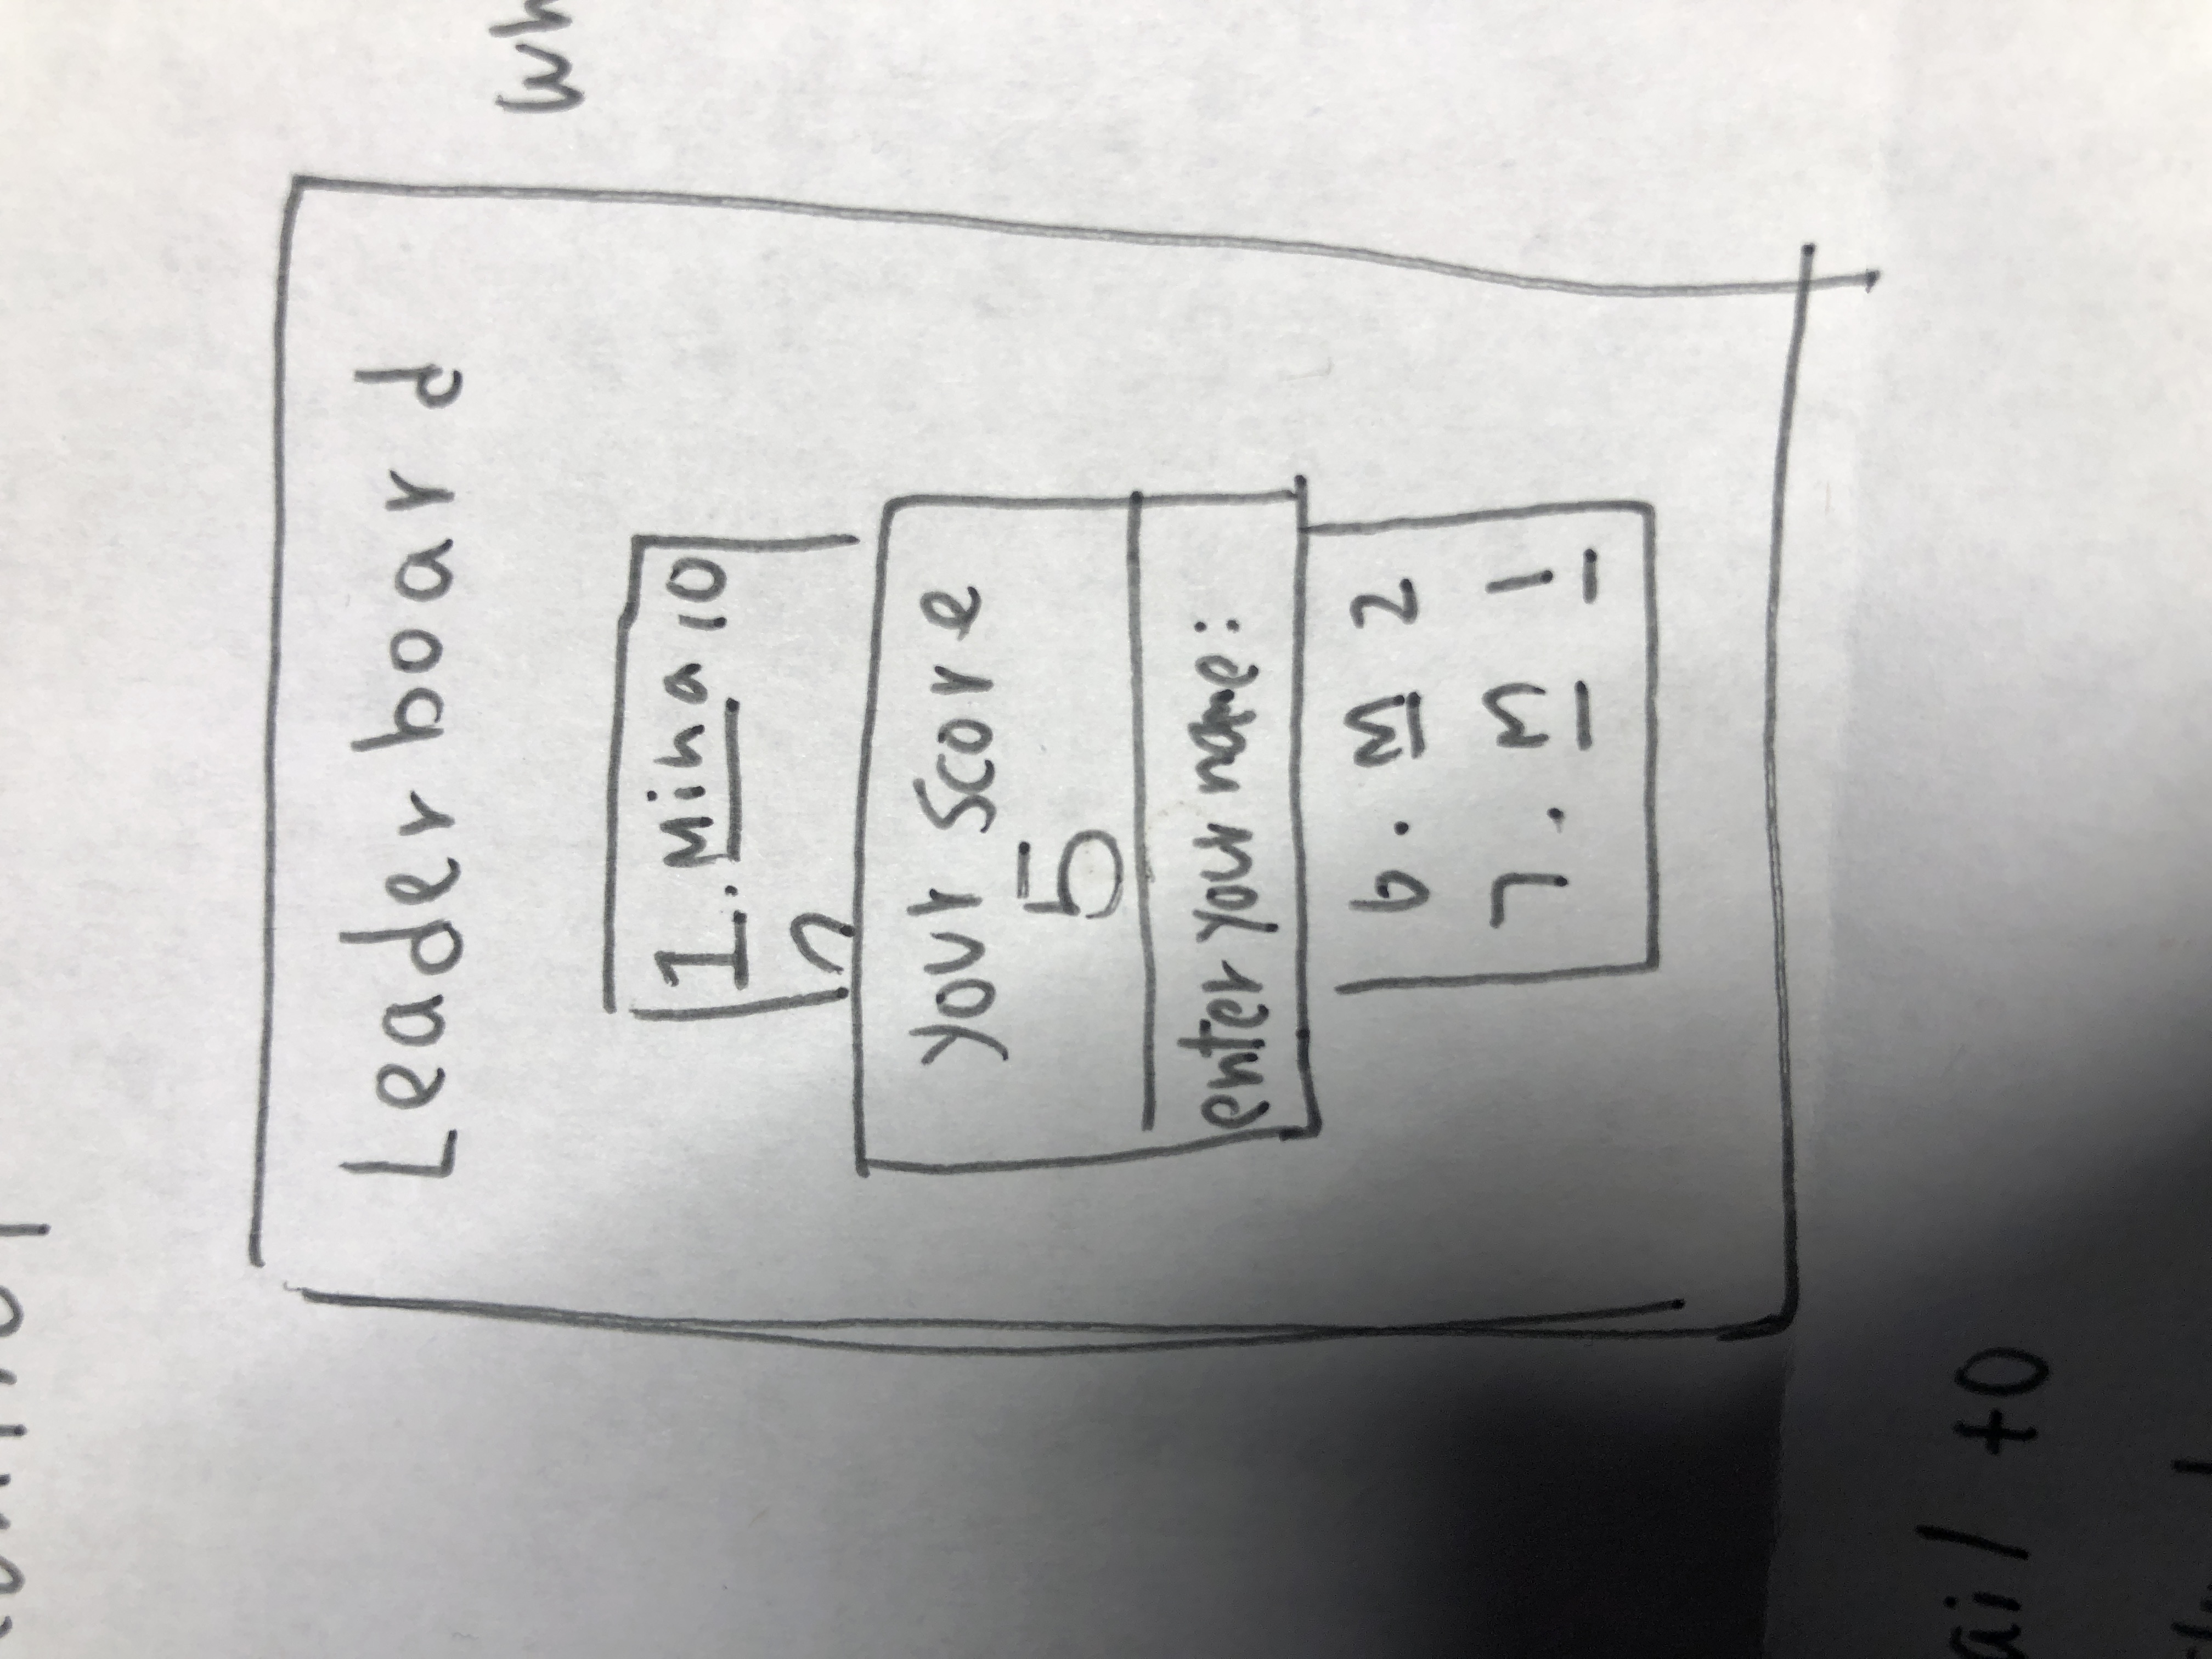 Leaderboard
wh
1. Mina 10
2
your score
5
enter your name:
6. M 2
7. M 1
ail to